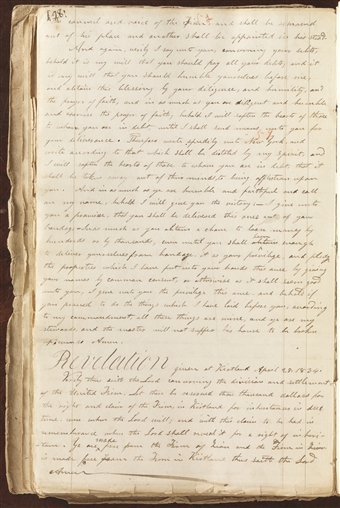 128.
council and voice of the order and shall be removed
out of his place and another shall be appointed in his stead.
And again, verily I say unto you, concerning your debts,
behold it is my will that you should pay all your debts, and it
is my will that you should humble yourselves before me,
and obtain this blessing by your diligence, and humility, and
the prayer of faith, and in as much as you are diligent and humble
and exercise the prayer of faith, behold I will soften the hearts of those
to whom you are in debt, until I shall send means unto you for
your deliverance. Therefore write speedily unto New York, and
write according to that which shall be dictated by my Spirit, and
I will soften the hearts of those to whom you are in debt that it
shall be taken away out of their minds to bring affliction upon
you. And in as much as ye are humble and faithful and call
on my name, behold I will give you the victory—I give unto
you a promise, that you shall be delivered this once out of your
bondage. Inasmuch as you obtain a chance to loan money by
hundreds or by thousands, even until you shall obtain enough
to deliver yourselves from bondage it is your privilege, and pledge
the properties which I have put into your hands this once by giving
your names by common consent, or otherwise as it shall seem good
unto you, I give unto you the privilege this once, and behold if
you proceed to do the things which I have laid before you, according
to my commandments all these things are mine, and ye are my
stewards, and the master will not suffer his house to be broken
Amen.
Revelation given at Kirtland April 28. 1834.
Verily thus saith the Lord concerning the division and settlement
of the United Firm, Let there be reserved three thousand dollars for
the right and claim of the Firm in Kirtland for inheritances in due
time, even when the Lord will; and with this claim to be had in
remembrance when the Lord shall reveal it for a right of inheri-
tance. Ye are made free from the Firm of Zion and the Firm in Zion
is made free from the Firm in Kirtland thus saith the Lord
Amen